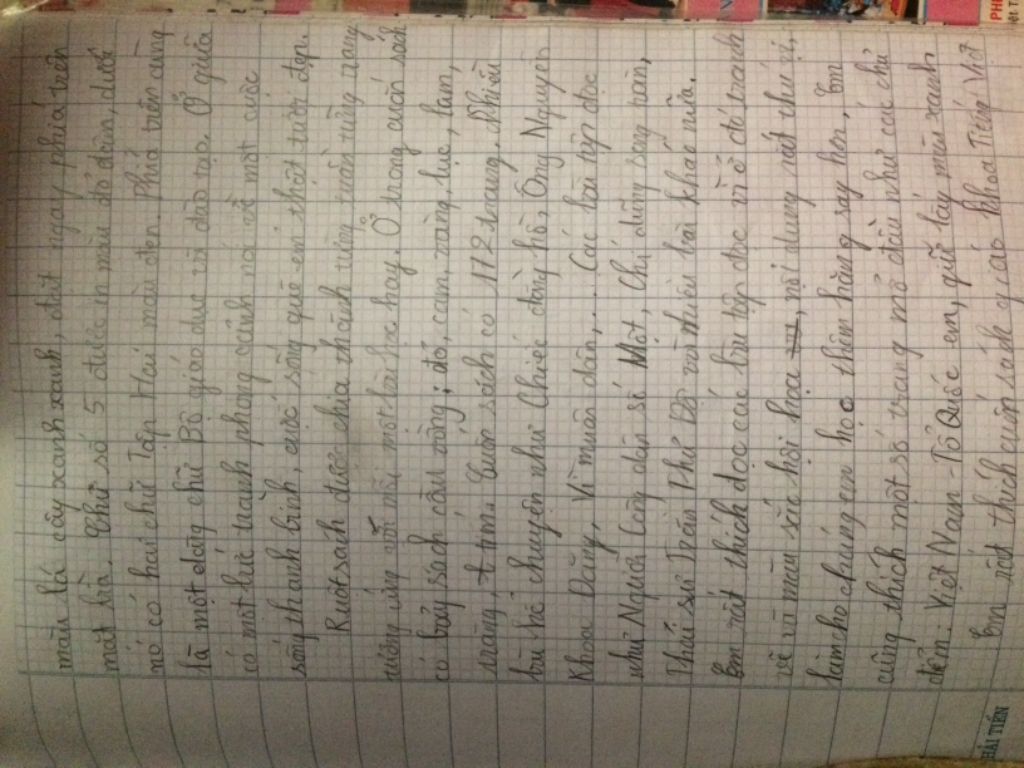 màu lá cây xanh xanh, đặt ngay phía trên
mát hà. Chữ số 5 được in màu đỏ đậm, dưới
nó có hai chữ Tập Hai màu đen. Phía trên cùng
là một dòng chữ Bộ giáo dục và đào tạo. Ở giữa
có một bức tranh phong cảnh nói về một cuộc
sống thanh bình, cuộc sống quê em thật tươi đẹp.
Ruột sách được chia thành từng tuần từng trang
tương ứng với mỗi một bài học hay. Ở trong cuốn sách
có bảy sách cầu vồng; đỏ, cam, vàng, lục, lam,
tràng, tím. Cuốn sách có 172 trang. Nhiều
bài kể chuyện như Chiếc đồng hồ, Ông Nguyễn
Khoa Đăng, Vì muôn dân,.. Các bài tập đọc
như Người công dân số Một, Chú dũng song toàn,
Thái sư Trần Thủ Độ và nhiều bài khác nữa.
Em rất thích đọc các bài tập đọc vì ở đó tranh
vẽ và màu sắc hội họa, nội dung rất thú vị,
làm cho chúng em học thêm hăng say hơn. Em
cũng thích một số trang mở đầu như các chủ
điểm: Việt Nam - Tổ Quốc em, giữ lấy màu xanh
Em rất thích cuốn sách giáo khoa Tiếng Việt
HẢI TIẾN